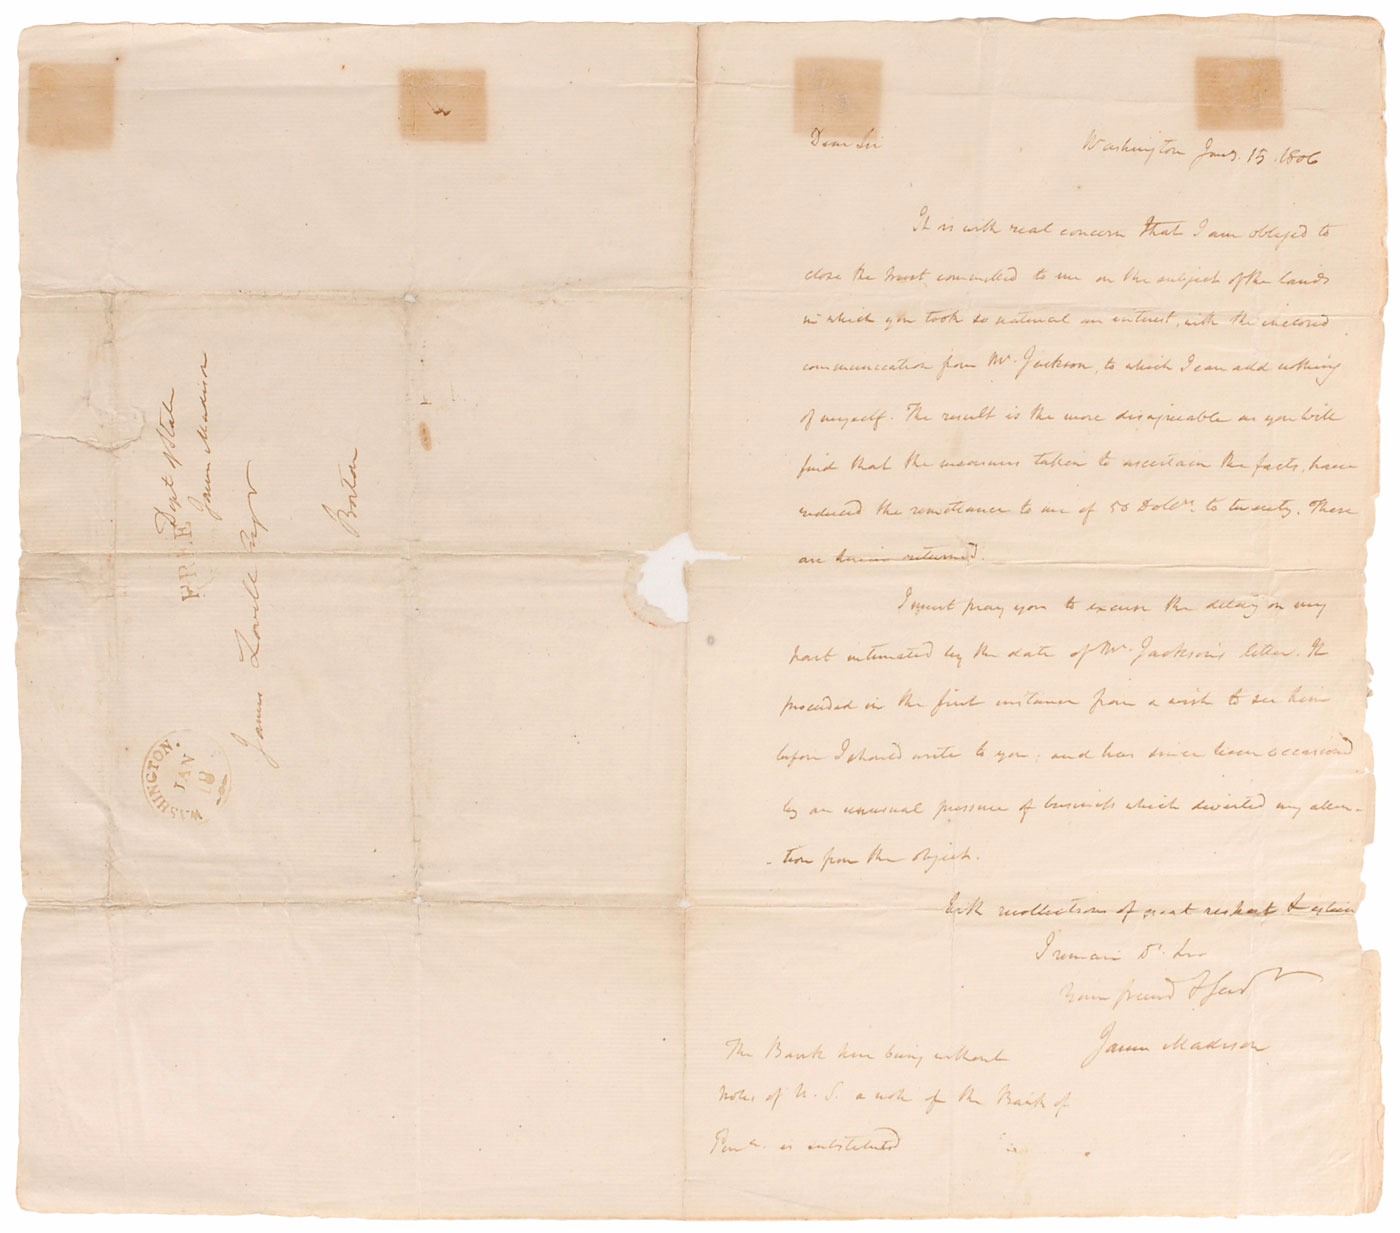 Dept of State
James Madison
FREE
James Lovell Esqr
Boston
WASHINGTON.
JAN
18
Dear Sir
Washington Jany. 15. 1806
It is with real concern that I am obliged to
close the trust committed to me on the subject of the lands
in which you took so natural an interest, with the inclosed
communication from Mr. Jackson, to which I can add nothing
of myself. The result is the more disagreeable as you will
find that the measures taken to ascertain the facts, have
reduced the remittance to me of 50 Dollrs. to twenty. These
are herein returned.
I must pray you to excuse the delay on my
part intimated by the date of Mr. Jackson's letter. It
proceeded in the first instance from a wish to see him
before I should write to you; and has since been occasioned
by an unusual pressure of business which diverted my atten-
-tion from the object.
With recollections of great respect & esteem
I remain Dr. Sir
Your friend & Servt
James Madison
The Bank here being without
notes of U. S. a note of the Bank of
Pena. is substituted